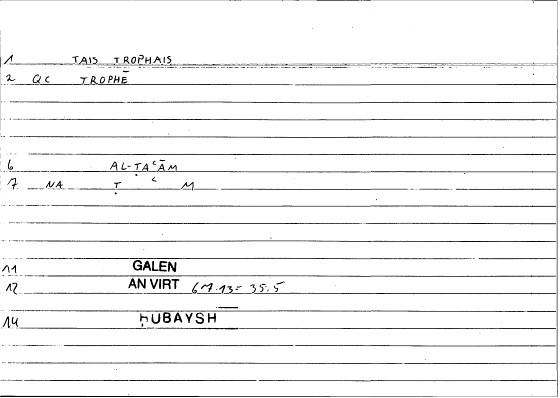 1 TAIS TROPHAIS
2 QC TROPHĒ
6 AL-ṬAʿĀM
7 NA Ṭ ʿ M
11 GALEN
12 AN VIRT 67.13= 35.5
14 ḥUBAYSH